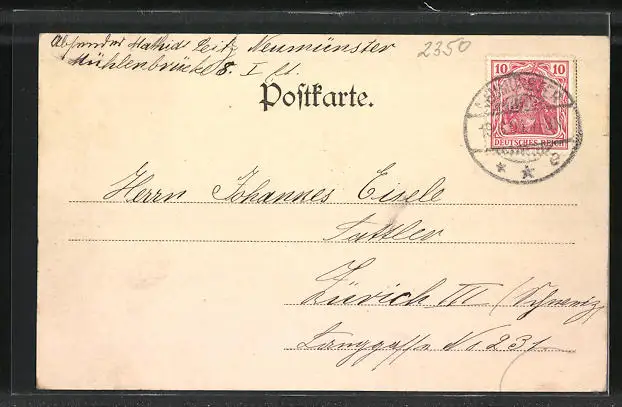 Absender Mathias Seitz Neumünster
Mühlenbrücke 8. I Et.
2350
Postkarte.
10 10
DEUTSCHES REICH
Herrn Johannes Eisele
Sattler
Zürich III (Schweiz)
Langgasse No. 231